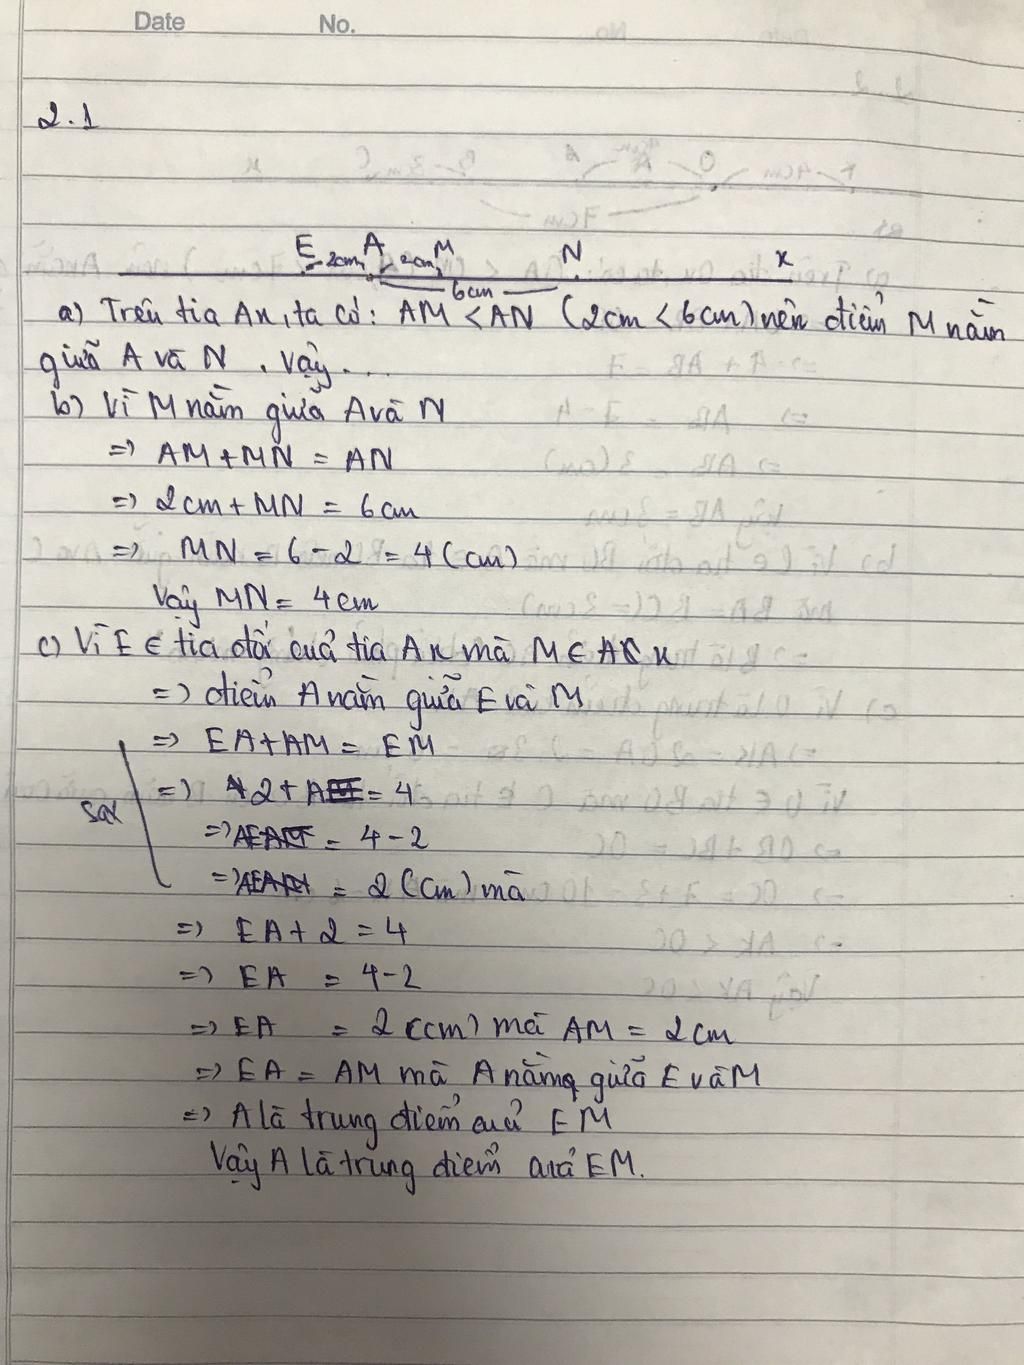 Date No.
2.1
E 2cm A 2cm M N x
6cm
a) Trên tia Ax, ta có: AM < AN (2cm < 6cm) nên điểm M nằm
giữa A và N. Vậy...
b) Vì M nằm giữa A và N
=> AM + MN = AN
=> 2cm + MN = 6cm
=> MN = 6 - 2 = 4 (cm)
Vậy MN = 4cm
c) Vì E ∈ tia đối của tia Ax mà M ∈ A x
=> điểm A nằm giữa E và M
=> EA + AM = EM
=> 2 + A = 4
=> = 4 - 2
sai
=> = 2 (cm) mà
=> EA + 2 = 4
=> EA = 4 - 2
=> EA = 2 (cm) mà AM = 2cm
=> EA = AM mà A nằm giữa E và M
=> A là trung điểm của EM
Vậy A là trung điểm của EM.